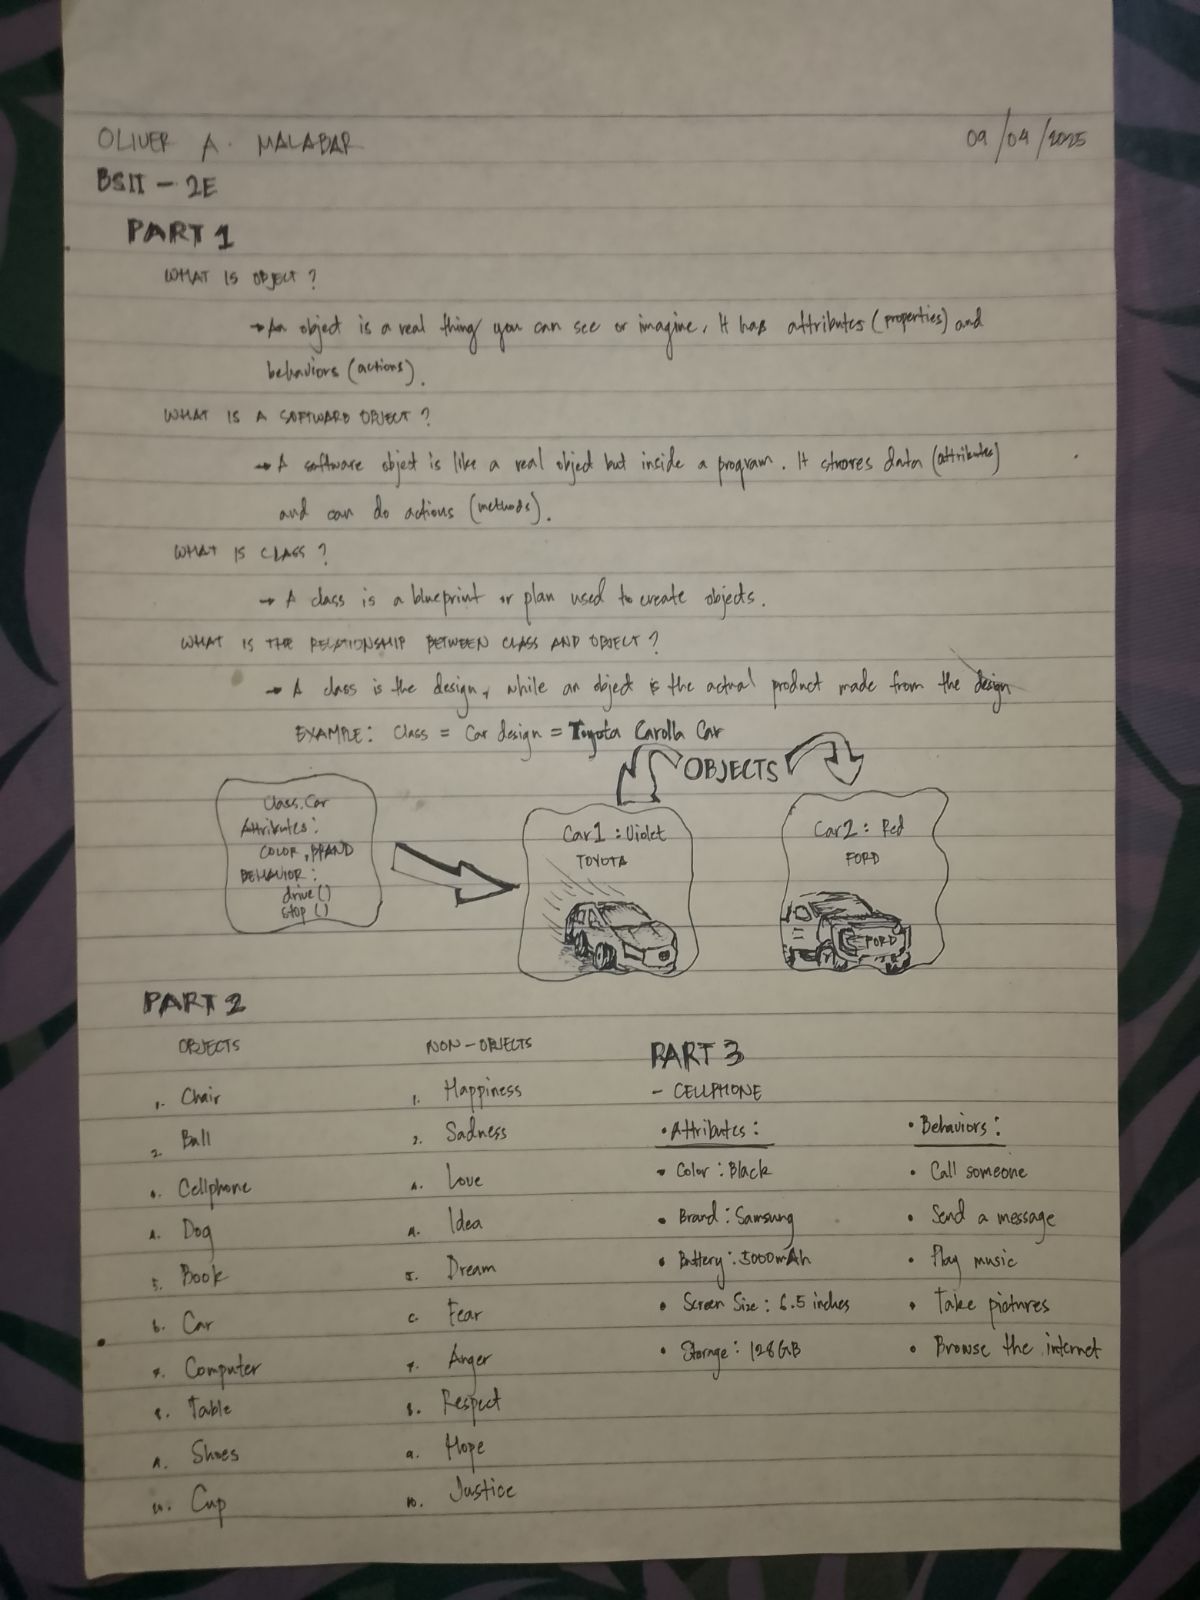 OLIVER A. MALABAR
09/04/2025
BSIT - 2E
PART 1
WHAT IS OBJECT?
→ An object is a real thing you can see or imagine. It has attributes (properties) and
behaviors (actions).
WHAT IS A SOFTWARD OBJECT?
→ A software object is like a real object but inside a program. It stores data (attributes)
and can do actions (methods).
WHAT IS CLASS?
→ A class is a blueprint or plan used to create objects.
WHAT IS THE RELATIONSHIP BETWEEN CLASS AND OBJECT?
→ A class is the design, while an object is the actual product made from the design
EXAMPLE: Class = Car design = Toyota Carolla Car
OBJECTS
Class.Car
Attributes:
COLOR, BRAND
BEHAVIOR:
drive()
stop()
Car1 : Violet
TOYOTA
Car2 : Red
FORD
FORD
PART 2
OBJECTS
1. Chair
2. Ball
3. Cellphone
4. Dog
5. Book
6. Car
7. Computer
8. Table
9. Shoes
10. Cup
NON-OBJECTS
1. Happiness
2. Sadness
3. Love
4. Idea
5. Dream
6. Fear
7. Anger
8. Respect
9. Hope
10. Justice
PART 3
- CELLPHONE
• Attributes:
• Color : Black
• Brand : Samsung
• Battery : 5000mAh
• Screen Size : 6.5 inches
• Storage : 128GB
• Behaviors:
• Call someone
• Send a message
• Play music
• Take pictures
• Browse the internet